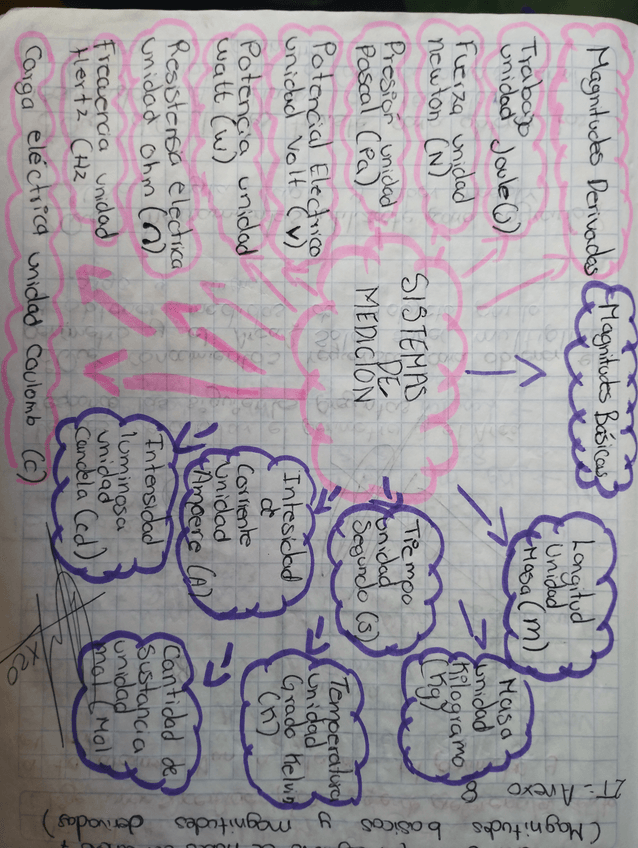 (Magnitudes basicas y magnitudes derivadas)
IT= Anexo 8
Magnitudes Derivadas
Trabajo
unidad Joule (J)
Fuerza unidad
newton (N)
Presión unidad
Pascal (Pa)
Potencial Electrico
unidad Volt (V)
Potencia unidad
watt (W)
Resistensia electrica
unidad Ohm (Ω)
Frecuencia unidad
Hertz (Hz
Carga eléctrica unidad Coulomb (C)
SISTEMAS
DE
MEDICION
Magnitudes Básicas
Longitud
Unidad
Masa (M)
Masa
unidad
Kilogramo
(Kg)
Tiempo
unidad
Segundo (s)
Temperatura
unidad
Grado Kelvin
(K)
Intesidad
de
Corriente
unidad
Ampere (A)
Cantidad de
Sustancia
unidad
mol (Mol
Intensidad
luminosa
unidad
Candela (Cd)